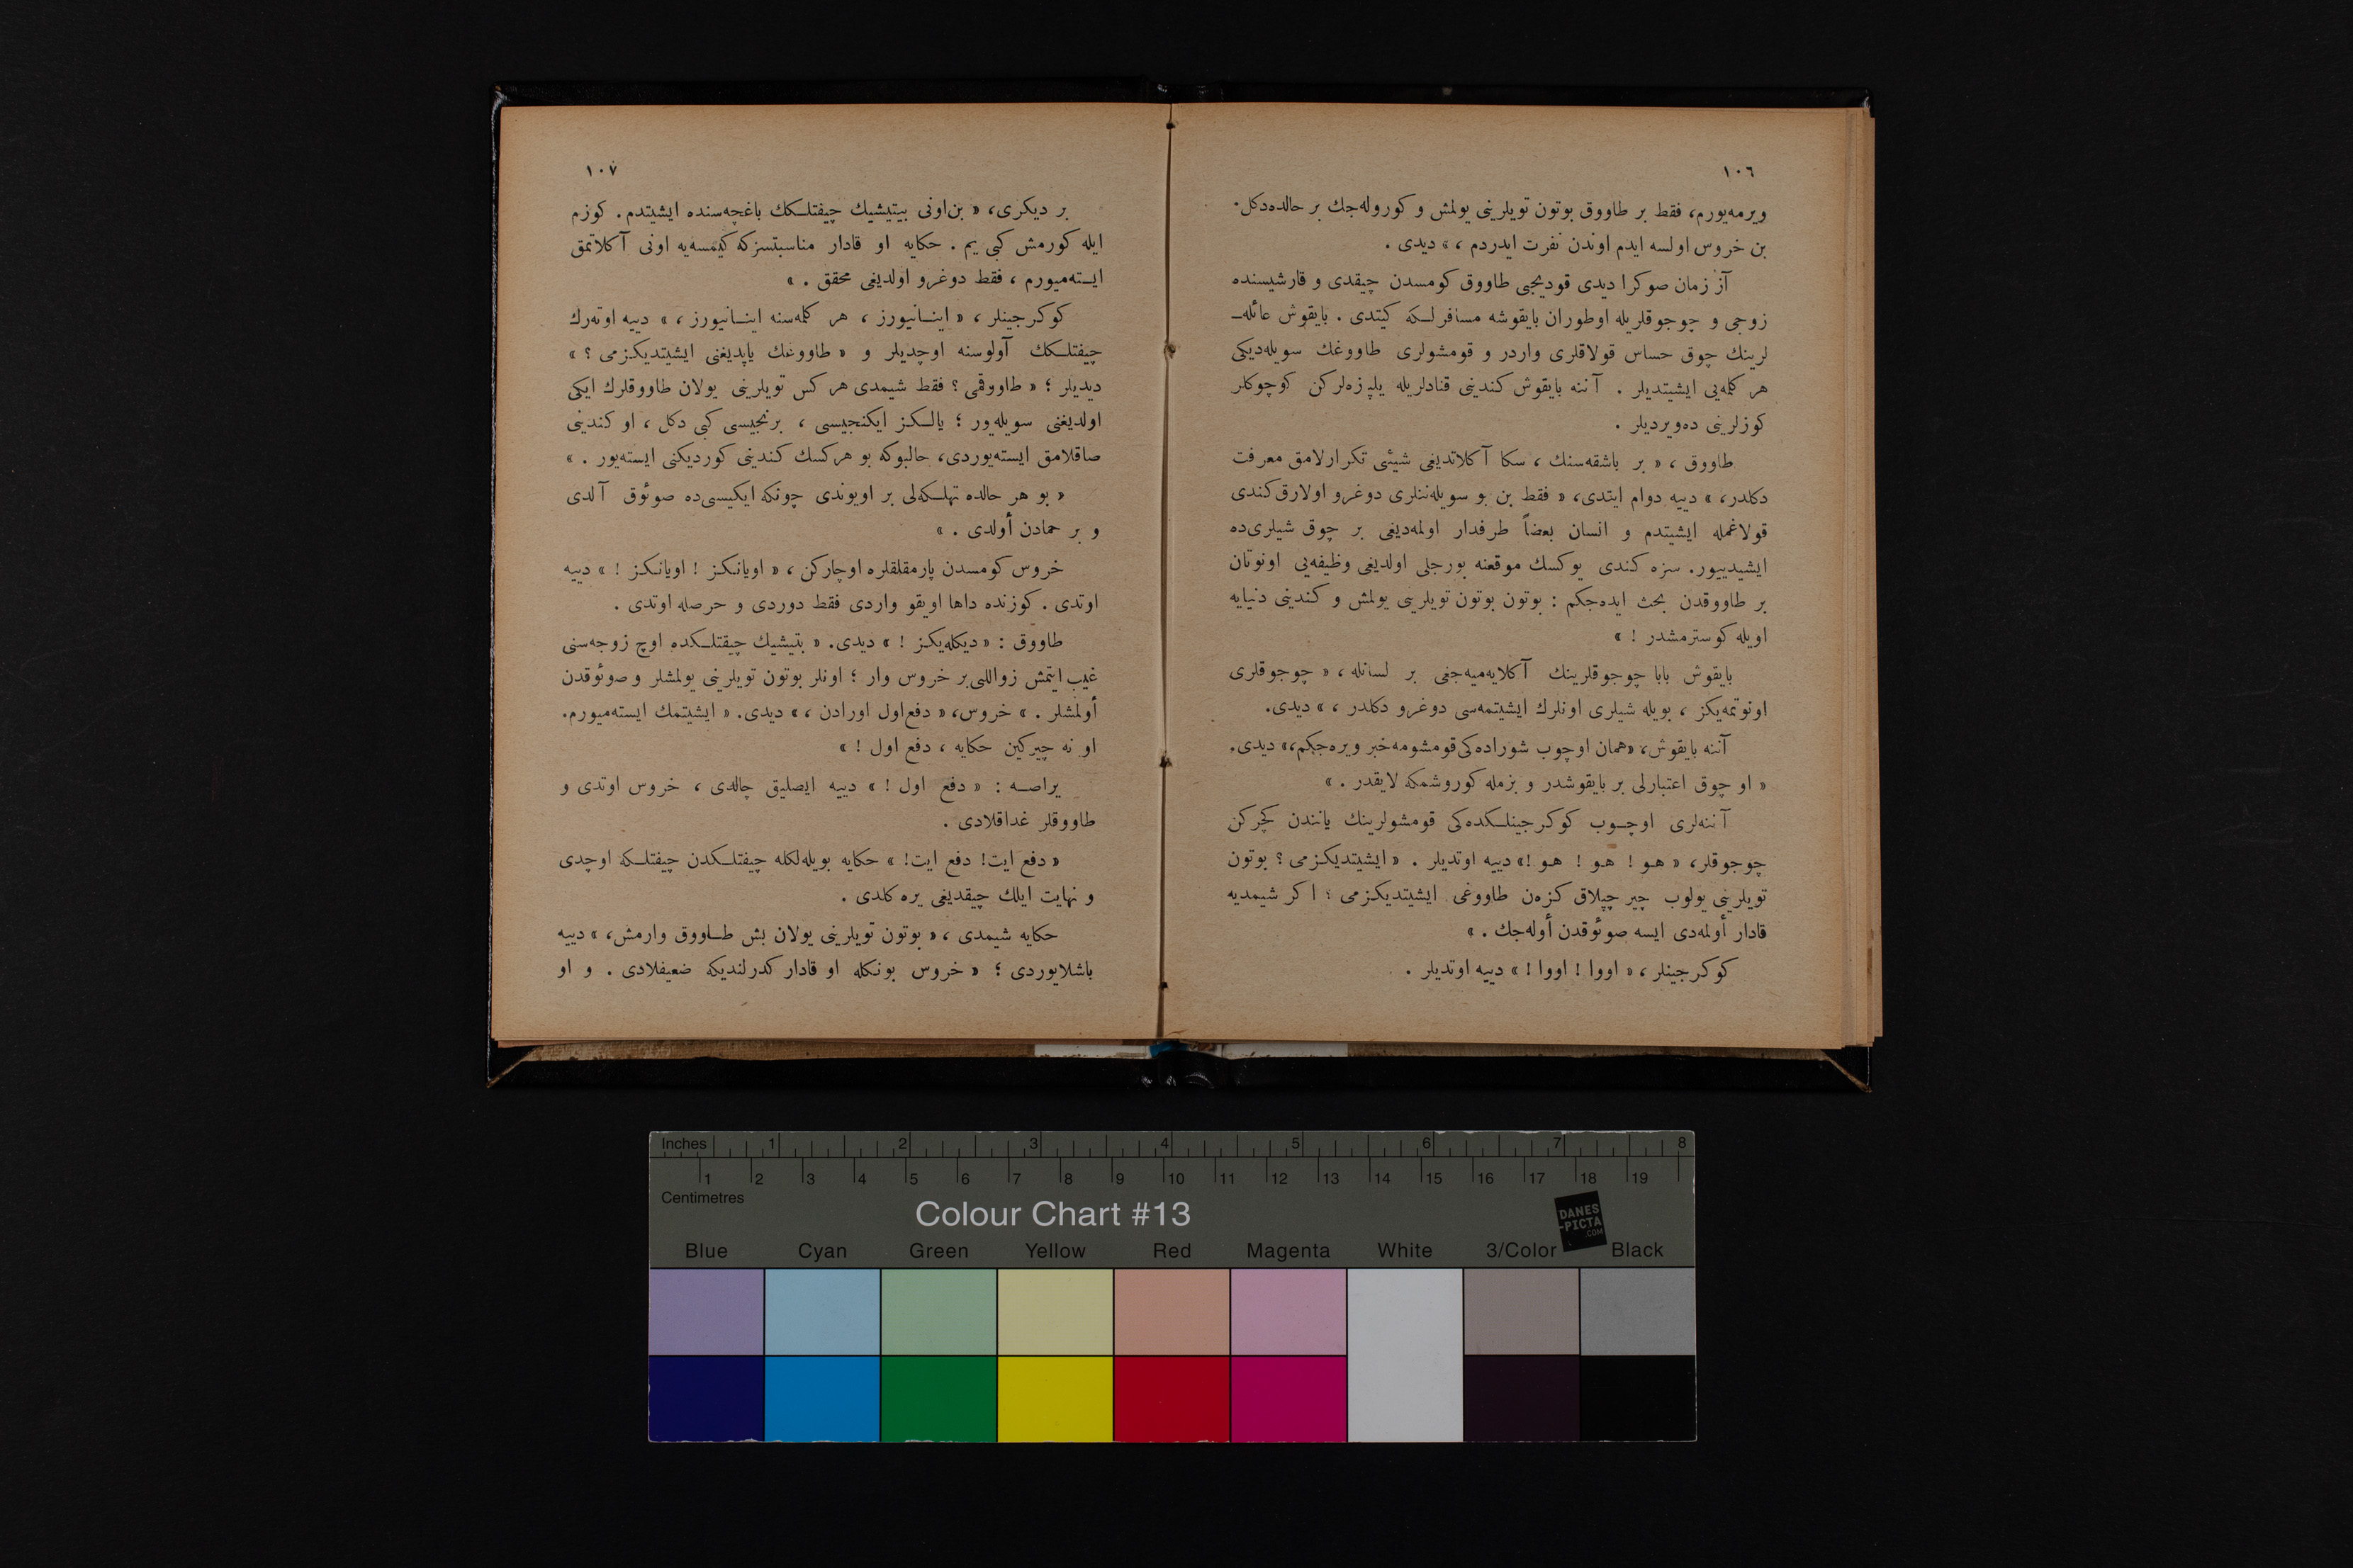 ١٠٦
ويرمه‌يورم، فقط بر طاووق بوتون تويلرينى يولمش و كوروله‌جك بر حالده‌دكل.
بن خروس اولسه ايدم اوندن نفرت ايدردم ، » ديدى .
آز زمان صوكرا ديدى قوديجى طاووق كومسدن چيقدى و قارشيسنده
زوجى و چوجوقلريله اوطوران بايقوشه مسافرلـكه كيتدى . بايقوش عائله‌ـ
لرينك چوق حساس قولاقلرى واردر و قومشولرى طاووغك سويله‌ديكى
هر كلمه‌يى ايشيتديلر . آننه بايقوش كندينى قنادلريله يلپزه‌لركن كوچوكلر
كوزلرينى ده‌ويرديلر .
طاووق ، « بر باشقه‌سنك ، سكا آكلاتديغى شيئى تكرارلامق معرفت
دكلدر، » دييه دوام ايتدى، « فقط بن بو سويله‌ننلرى دوغرو اولارق كندى
قولاغمله ايشيتدم و انسان بعضاً طرفدار اولمه‌ديغى بر چوق شيلرى‌ده
ايشيدييور. سزه كندى يوكسك موقعنه بورجلى اولديغى وظيفه‌يى اونوتان
بر طاووقدن بحث ايده‌جكم : بوتون بوتون تويلرينى يولمش و كندينى دنيايه
اويله كوسترمشدر ! »
بايقوش بابا چوجوقلرينك آكلايه‌ميه‌جغى بر لسانله ، « چوجوقلرى
اونوتمه‌يكز ، بويله شيلرى اونلرك ايشيتمه‌سى دوغرو دكلدر ، » ديدى.
آننه بايقوش، «همان اوچوب شوراده‌كى قومشومه‌خبر ويره‌جكم،» ديدى.
« او چوق اعتبارلى بر بايقوشدر و بزمله كوروشمكه لايقدر . »
آننه‌لرى اوچـوب كوكرجينلـكده‌كى قومشولرينك يانندن كچركن
چوجوقلر، « هـو ! هـو ! هـو !» دييه اوتديلر . « ايشيتديكزمى ؟ بوتون
تويلرينى يولوب چير چپلاق كزه‌ن طاووغى ايشيتديكزمى ؟ اكر شيمديه
قادار أولمه‌دى ايسه صوئوقدن أوله‌جك . »
كوكرجينلر ، « اووا ! اووا ! » دييه اوتديلر .
١٠٧
بر ديكرى، « بن‌اونى بيتيشيك چيفتلـكك باغچه‌سنده ايشيتدم . كوزم
ايله كورمش كبى يم . حكايه او قادار مناسبتسزكه كيمسه‌يه اونى آكلاتمق
ايـسته‌ميورم ، فقط دوغرو اولديغى محقق . »
كوكرجينلر ، « اينـانيورز ، هر كلمه‌سنه اينـانيورز ، » دييه اوته‌رك
چيفتلـكك آولوسنه اوچديلر و « طاووغك ياپديغنى ايشيتديكزمى ؟ »
ديديلر ؛ « طاووقمى ؟ فقط شيمدى هر كس تويلرينى يولان طاووقلرك ايكى
اولديغنى سويله‌يور ؛ يالـكز ايكنجيسى ، برنجيسى كبى دكل ، او كندينى
صاقلامق ايسته‌يوردى، حالبوكه بو هركسك كندينى كورديكنى ايسته‌يور . »
« بو هر حالده تهلـكه‌لى بر اويوندى چونكه ايكيسى‌ده صوئوق آلدى
و بر حمادن أولدى . »
خروس كومسدن پارمقلقلره اوچاركن ، « اويانـكز ! اويانـكز ! » دييه
اوتدى . كوزنده داها اويقو واردى فقط دوردى و حرصله اوتدى .
طاووق : « ديكله‌يكز ! » ديدى. « بتيشيك چيفتلـكده اوچ زوجه‌سنى
غيب ايتمش زواللى‌بر خروس وار ؛ اونلر بوتون تويلرينى يولمشلر و صوئوقدن
أولمشلر . » خروس، « دفع‌اول اورادن ، » ديدى. « ايشيتمك ايسته‌ميورم.
او نه چيركين حكايه ، دفع اول ! »
يراصـه : « دفع اول ! » دييه ايصليق چالدى ، خروس اوتدى و
طاووقلر غداقلادى .
« دفع ايت! دفع ايت! » حكايه بويله‌لكله چيفتلـكدن چيفتلـكه اوچدى
و نهايت ايلك چيقديغى يره كلدى .
حكايه شيمدى ، « بوتون تويلرينى يولان بش طـاووق وارمش، » دييه
باشلايوردى ؛ « خروس بونكله او قادار كدرلنديكه ضعيفلادى . و او
Inches 1 2 3 4 5 6 7 8
1 2 3 4 5 6 7 8 9 10 11 12 13 14 15 16 17 18 19
Centimetres
Colour Chart #13
DANES
-PICTA
.COM
Blue Cyan Green Yellow Red Magenta White 3/Color Black